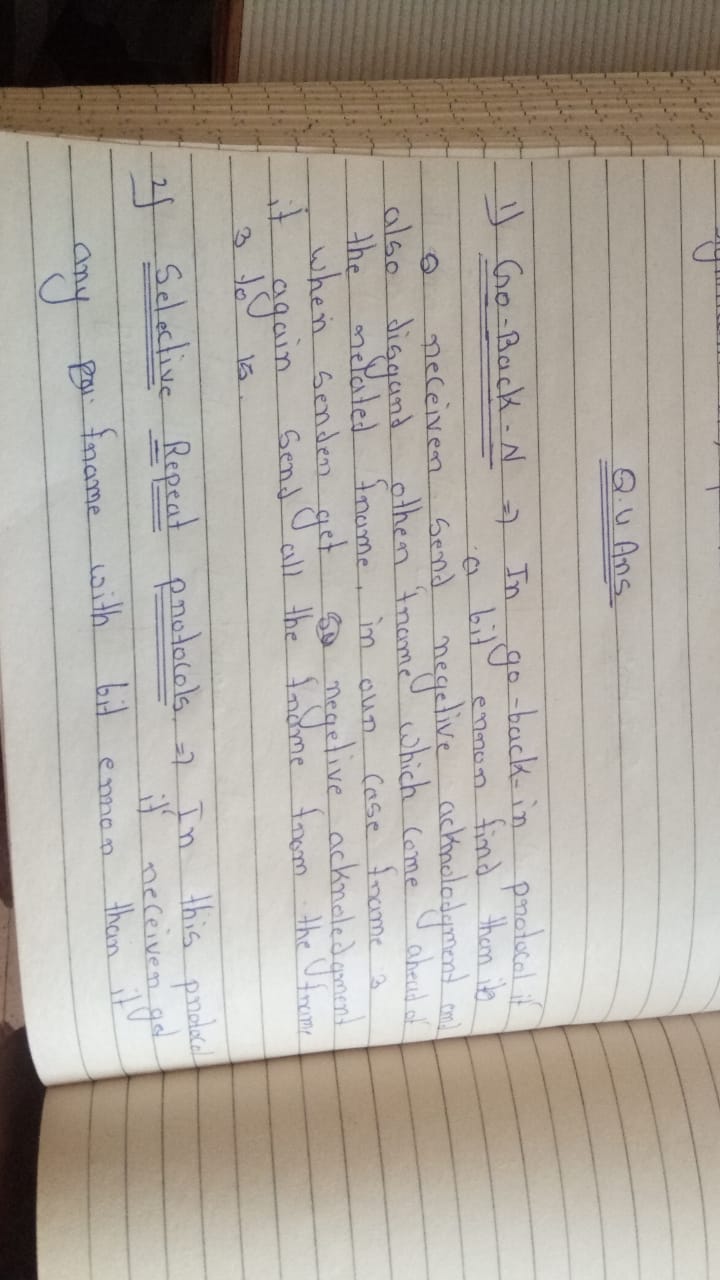 Q.4 Ans
1) Go-Back-N => In go-back-in protocol if
a bit error find than its
receiver send negetive acknolodgment and
also disgard other frame which come ahead of
the related frame, in our case frame 3
when sender get negetive acknoledgment
it again send all the frame from the frame
3 to 15.
2) Selective Repeat protocols => In this protocol
if receiver get
any frame with bit error than it